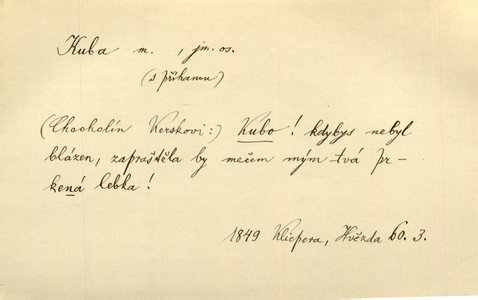 Kuba m. , jm. os.
(s příhanou)
(Chocholín Kerskovi:) Kubo! kdybys nebyl
blázen, zapraštěla by mečem mým tvá pr-
kená lebka!
1849 Klicpera, Hvězda 60. 3.